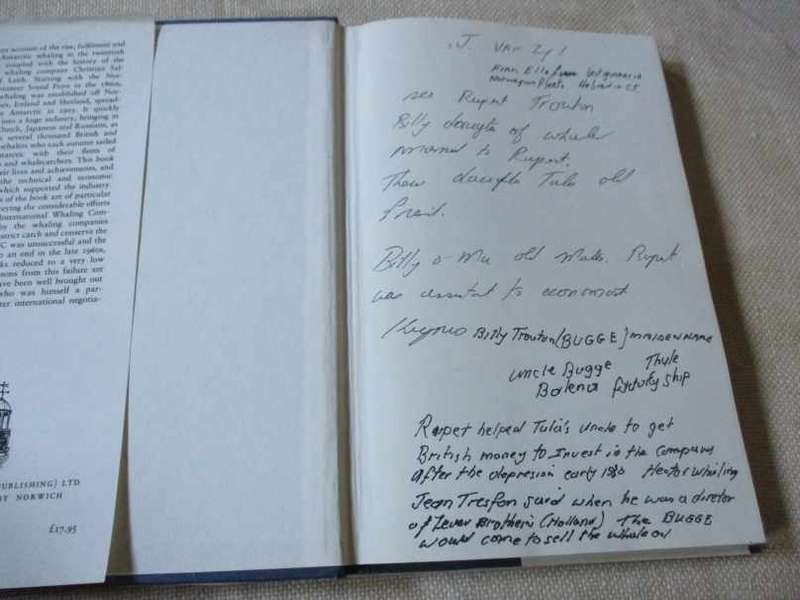 account of the rise, fulfilment and
Antarctic whaling in the twentieth
coupled with the history of the
whaling company Christian Sal-
of Leith. Starting with the Nor-
pioneer Svend Foyn in the 1860s,
whaling was established off Nor-
Iceland and Shetland, spread-
the Antarctic in 1905. It quickly
into a huge industry, bringing in
Dutch, Japanese and Russians, as
several thousand British and
whalers who each autumn sailed
Antarctic with their fleets of
and whalecatchers. This book
their lives and achievements, and
the technical and economic
which supported the industry.
s of the book are of particular
veying the considerable efforts
International Whaling Com-
by the whaling companies
strict catch and conserve the
C was unsuccessful and the
o an end in the late 1960s,
ks reduced to a very low
sons from this failure are
ave been well brought out
who was himself a par-
ter international negotia-
PUBLISHING) LTD
BY NORWICH
£17.95
J. VAN Zyl
see Rupert Trouton
Billy daughter of whaler
married to Rupert.
Their daughter Tula old
friend.
Billy a Mu old mate. Rupert
was assistant to economist
Keynes Billy Trouton (BUGGE) MAIDEN NAME
uncle Bugge Thule
Balena factory ship
Rupert helped Tula's uncle to get
British money to Invest in the company
after the depresion early 1930 Hector whaling
Jean Tresfon said when he was a diretor
of Lever Brothers (Holland) the BUGGE
would come to sell the whale oil